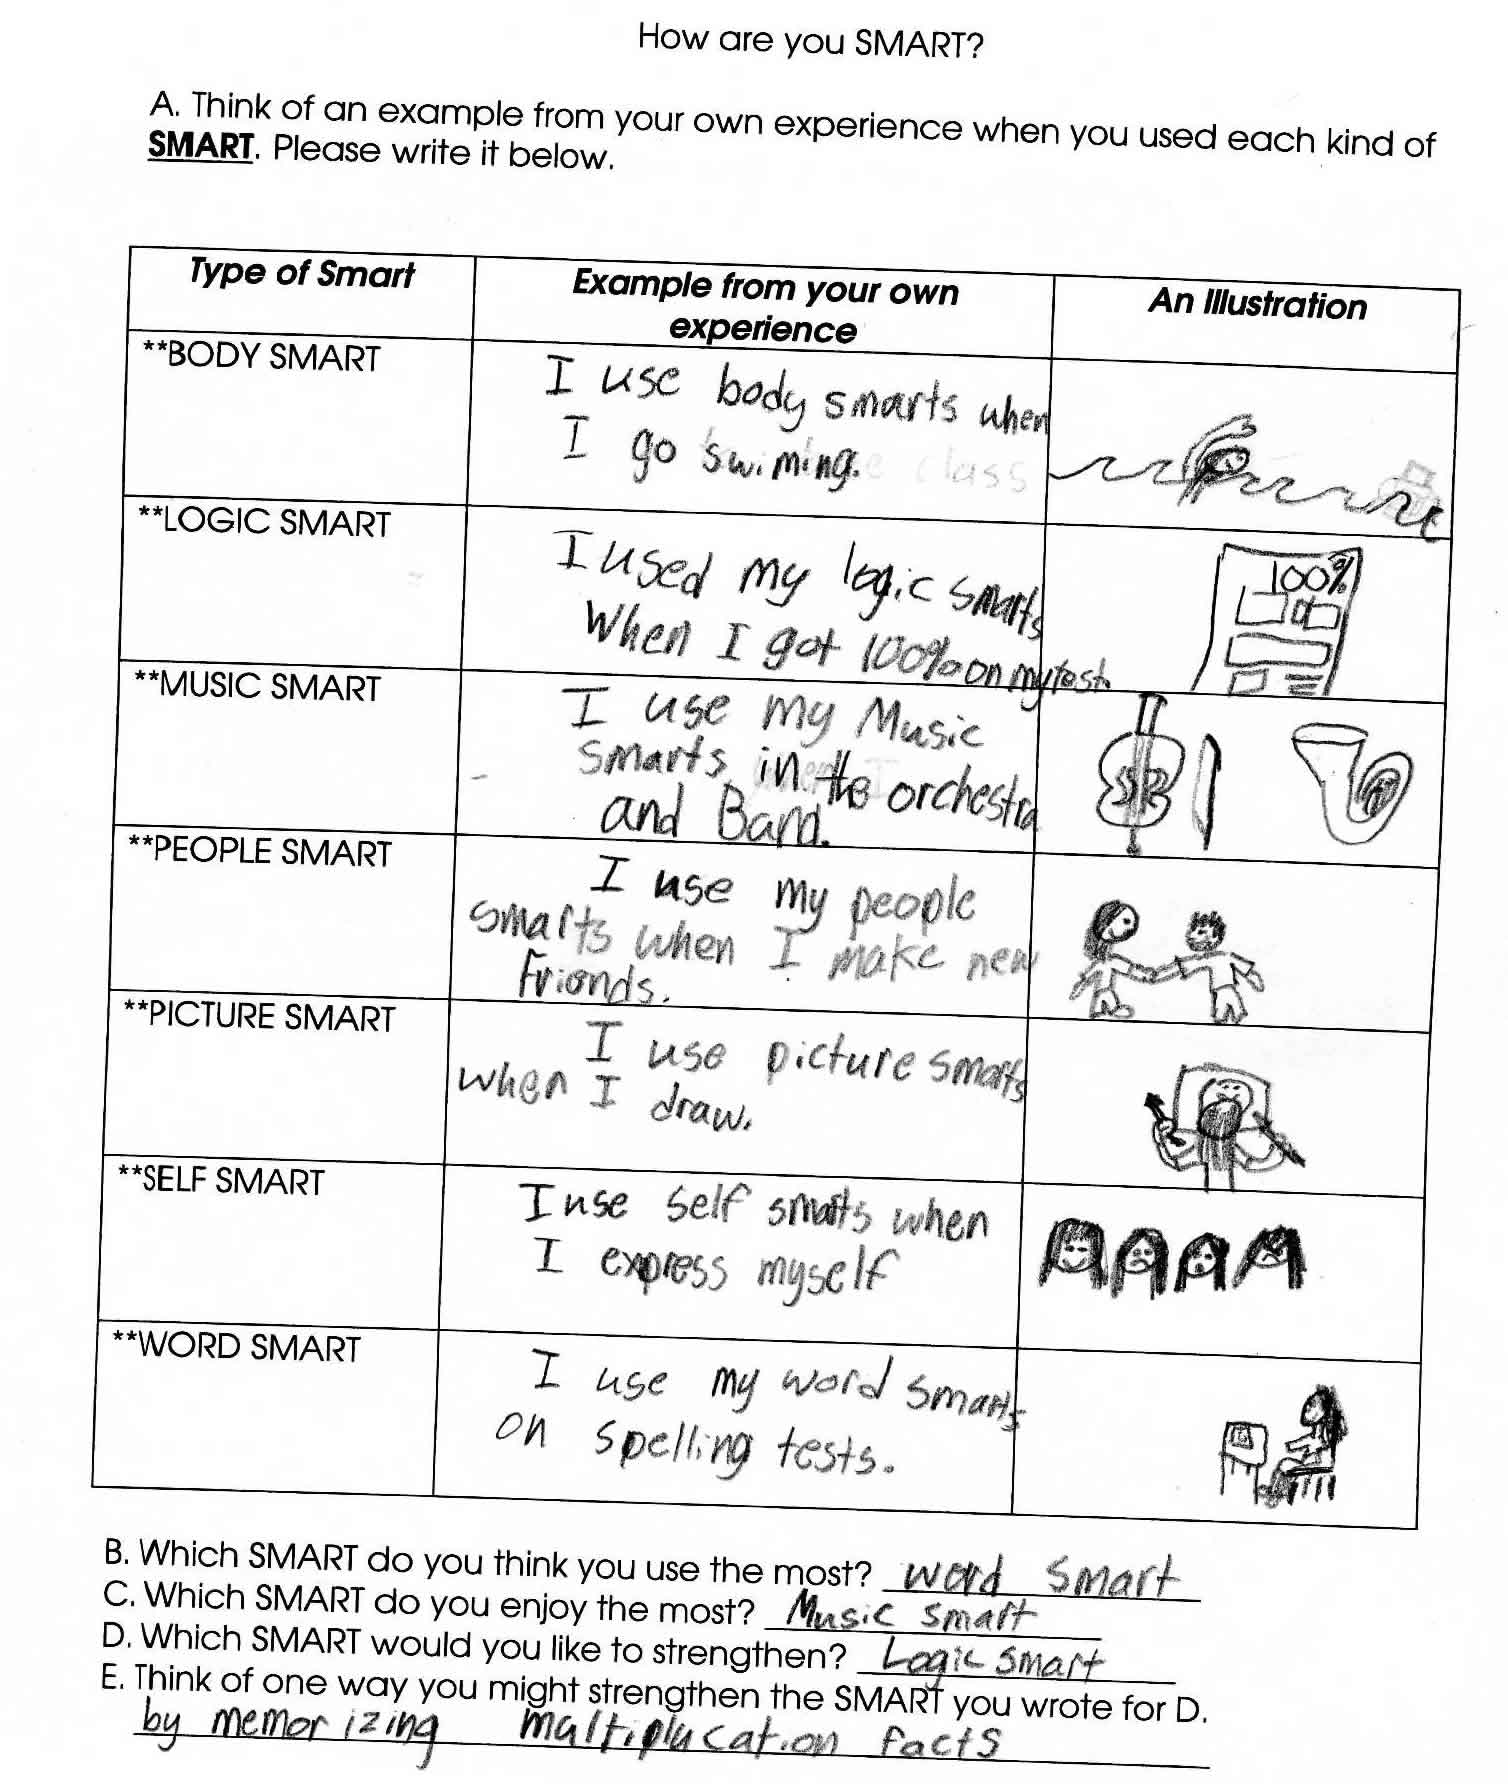 How are you SMART?
A. Think of an example from your own experience when you used each kind of
SMART. Please write it below.
Type of Smart
Example from your own
experience
An Illustration
**BODY SMART
I use body smarts when
I go swiming.
**LOGIC SMART
I used my logic smarts
When I got 100% on my test.
100%
**MUSIC SMART
I use my Music
smarts in the orchestra
and Band.
**PEOPLE SMART
I use my people
smarts when I make new
friends.
**PICTURE SMART
I use picture smarts
when I draw.
**SELF SMART
I use self smarts when
I express myself
**WORD SMART
I use my word smarts
on spelling tests.
B. Which SMART do you think you use the most? word smart
C. Which SMART do you enjoy the most? Music smart
D. Which SMART would you like to strengthen? Logic smart
E. Think of one way you might strengthen the SMART you wrote for D.
by memorizing multiplucation facts